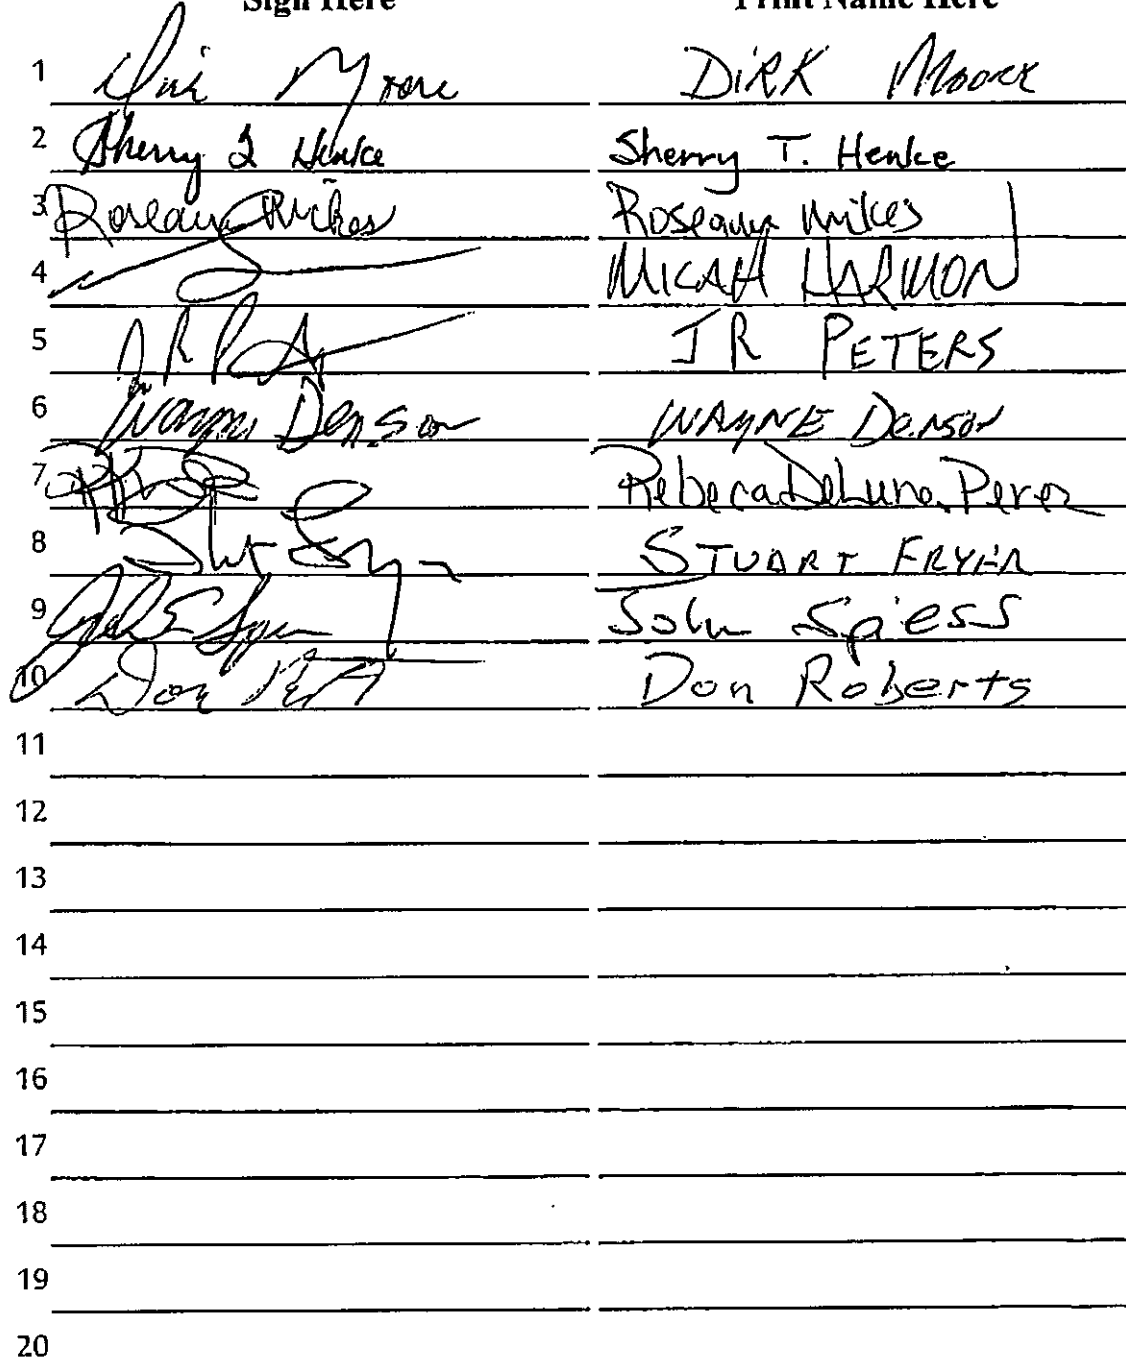 Sign Here Print Name Here
1 Dirk Moore DIRK Moore
2 Sherry T Henke Sherry T. Henke
3 Roseann Mikes Roseann Mikes
4 MICAH HARMON
5 J R PETERS
6 Wayne Denson WAYNE Denson
7 Rebeca DeLuna Perez
8 STUART FRYER
9 John E Spiess John Spiess
10 Don Don Roberts
11
12
13
14
15
16
17
18
19
20